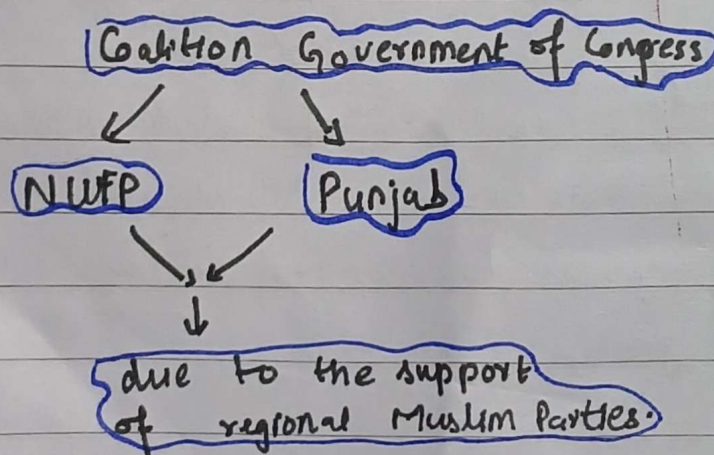 Coalition Government of Congress
NWFP
Punjab
due to the support
of regional Muslim Parties.